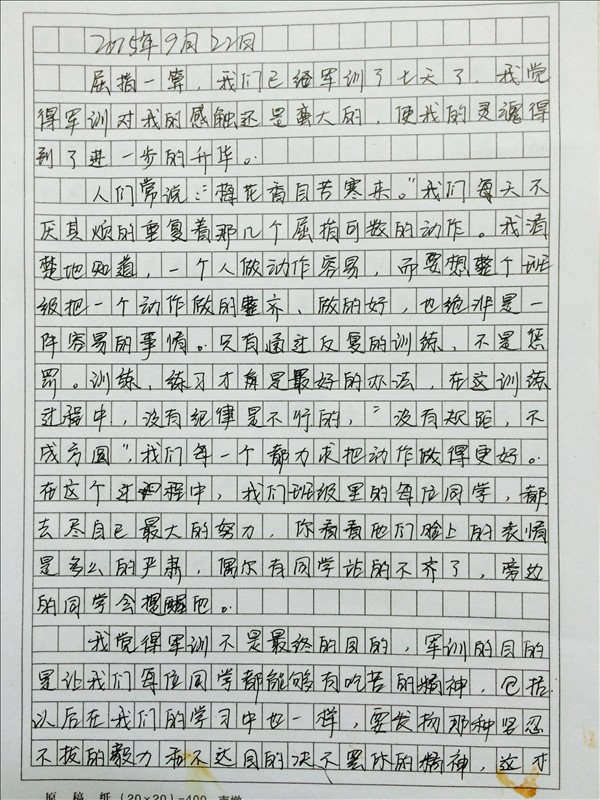 2015年9月22日
屈指一算，我们已经军训了七天了，我觉
得军训对我的感触还是蛮大的，使我的灵魂得
到了进一步的升华。
人们常说：“梅花香自苦寒来。”我们每天不
厌其烦的重复着那几个屈指可数的动作。我清
楚地知道，一个人做动作容易，而要想整个班
级把一个动作做的整齐、做的好，也绝非是一
件容易的事情。只有通过反复的训练，不是惩
罚。训练、练习才是最好的办法，在这训练
过程中，没有纪律是不行的，“没有规距，不
成方圆”，我们每一个都力求把动作做得更好。
在这个过程中，我们班级里的每位同学，都
去尽自己最大的努力，你看看他们脸上的表情
是多么的严肃，偶尔有同学站的不齐了，旁边
的同学会提醒他。
我觉得军训不是最终的目的，军训的目的
是让我们每位同学都能够有吃苦的精神，包括
以后在我们的学习中也一样，要发扬那种坚忍
不拔的毅力和不达目的决不罢休的精神，这才
原 稿 纸 (20×20)=400